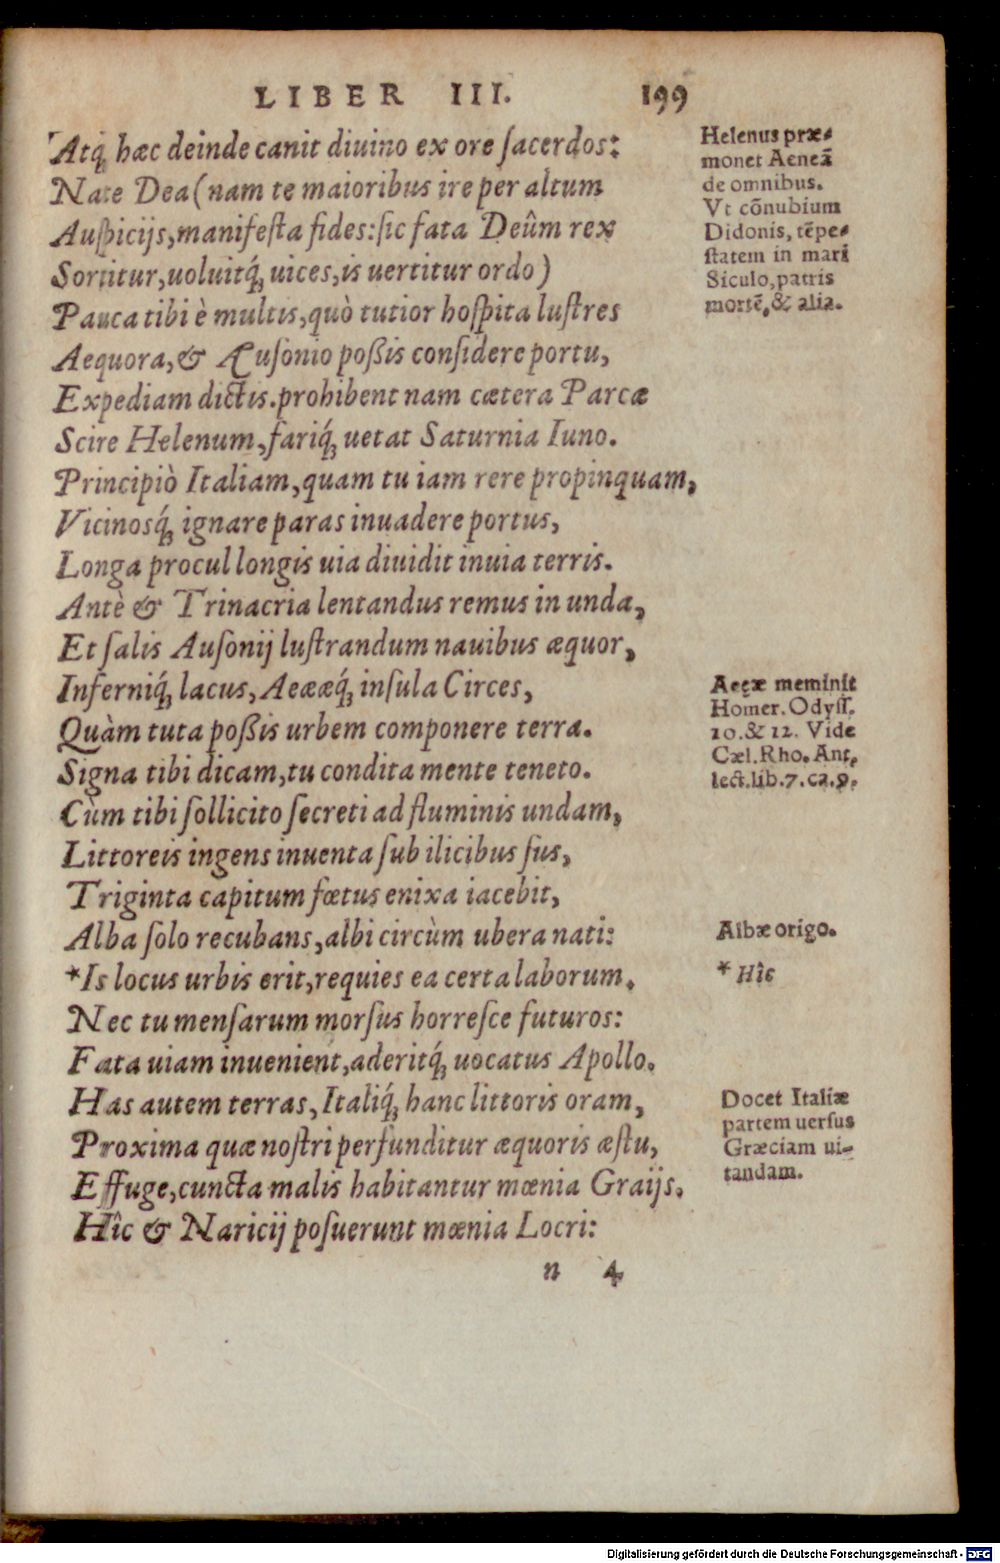 LIBER III. 199
Atq́; hæc deinde canit diuino ex ore ſacerdos:
Nate Dea (nam te maioribus ire per altum
Auſpicijs, manifeſta fides: ſic fata Deûm rex
Sortitur, uoluitq́; uices, is uertitur ordo)
Pauca tibi è multis, quò tutior hoſpita luſtres
Aequora, & Auſonio poßis conſidere portu,
Expediam dictis. prohibent nam cætera Parcæ
Scire Helenum, fariq́; uetat Saturnia Iuno.
Principiò Italiam, quam tu iam rere propinquam,
Vicinosq́; ignare paras inuadere portus,
Longa procul longis uia diuidit inuia terris.
Antè & Trinacria lentandus remus in unda,
Et ſalis Auſonij luſtrandum nauibus æquor,
Inferniq́; lacus, Aeææq́; inſula Circes,
Quàm tuta poßis urbem componere terra.
Signa tibi dicam, tu condita mente teneto.
Cùm tibi ſollicito ſecreti ad fluminis undam,
Littoreis ingens inuenta ſub ilicibus ſus,
Triginta capitum fœtus enixa iacebit,
Alba ſolo recubans, albi circùm ubera nati:
*Is locus urbis erit, requies ea certa laborum.
Nec tu menſarum morſus horreſce futuros:
Fata uiam inuenient, aderitq́; uocatus Apollo.
Has autem terras, Italiq́; hanc littoris oram,
Proxima quæ noſtri perfunditur æquoris æſtu,
Effuge, cuncta malis habitantur mœnia Graijs.
Hîc & Naricij poſuerunt mœnia Locri:
n 4
Helenus præ-
monet Aeneã
de omnibus.
Vt cõnubium
Didonis, tẽpe-
ſtatem in mari
Siculo, patris
mortẽ, & alia.
Aeææ meminit
Homer. Odyſſ.
10. & 12. Vide
Cæl. Rho. Ant.
lect. lib. 7. ca. 9.
Albæ origo.
* Hîc
Docet Italiæ
partem uerſus
Græciam ui-
tandam.
Digitalisierung gefördert durch die Deutsche Forschungsgemeinschaft - DFG